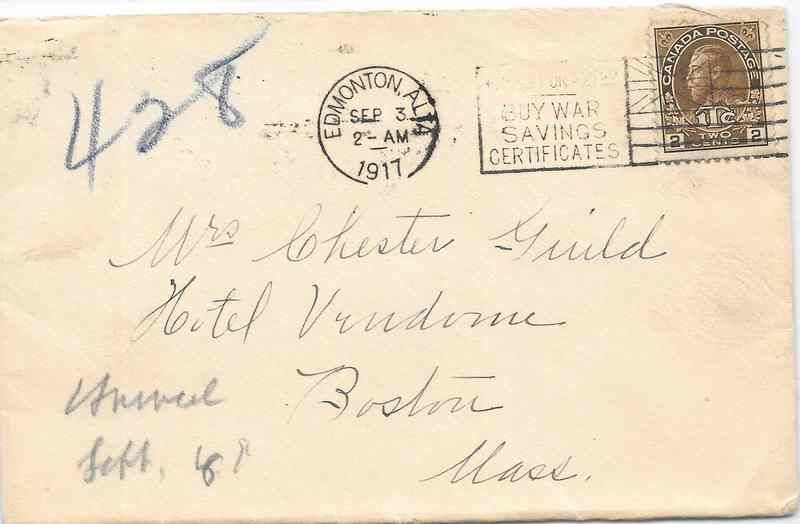 428
EDMONTON, ALTA
SEP 3
2 AM
1917
BUY WAR
SAVINGS
CERTIFICATES
CANADA POSTAGE
1TC
2 TWO CENTS 2
Mrs Chester Guild
Hotel Vendome
Boston
Mass.
Sept.